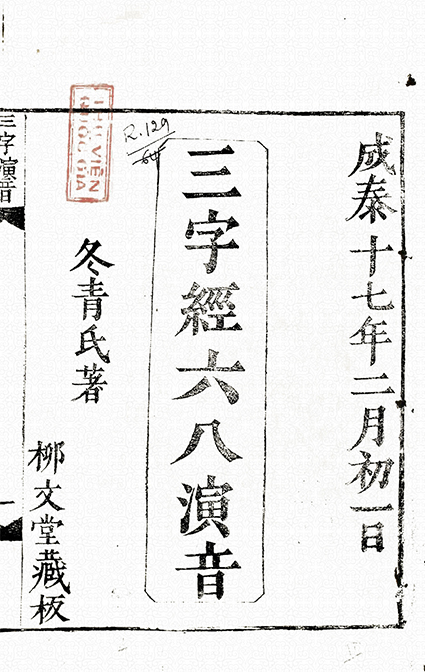 成泰十七年二月初一日
三字經六八演音
冬青氏著
柳文堂藏板
三字演音
一
R.129
THƯ VIỆN
QUỐC GIA